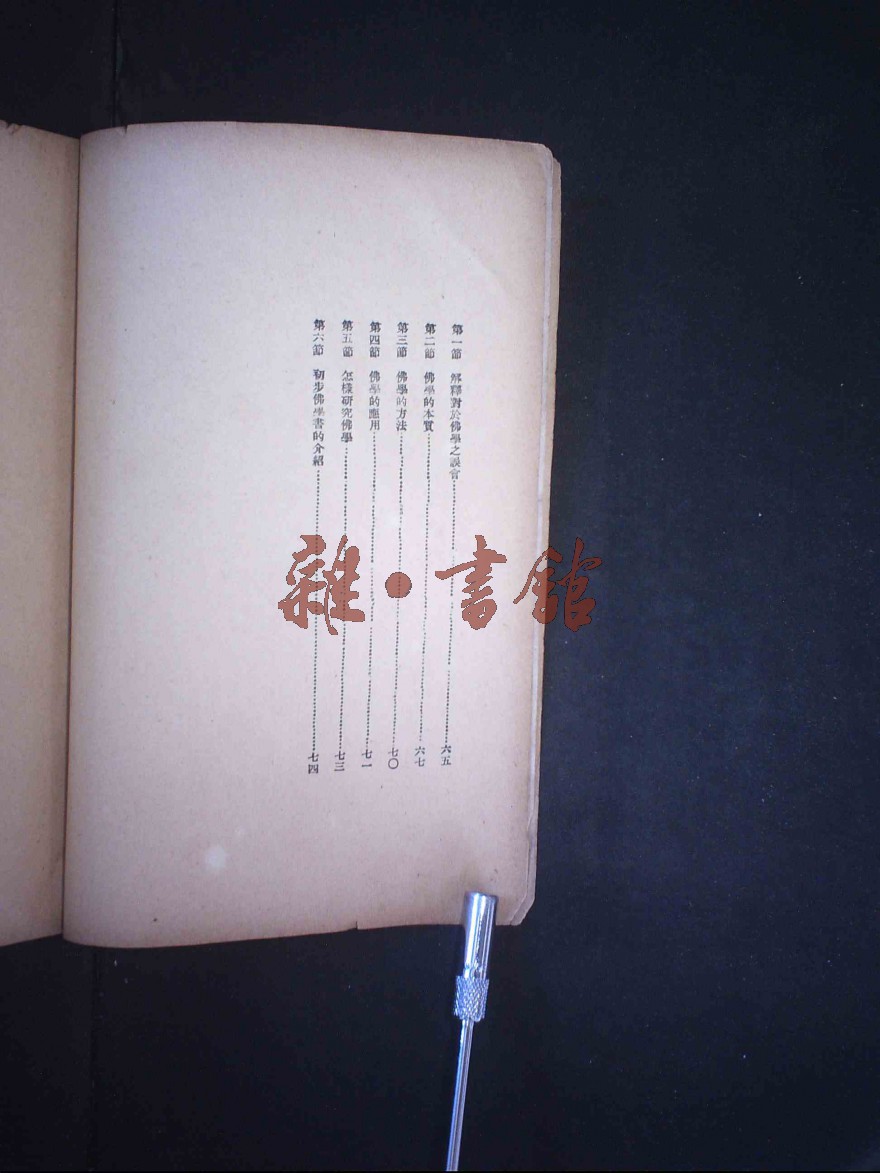 第一節　解釋對於佛學之誤會……六五
第二節　佛學的本質……六七
第三節　佛學的方法……七〇
第四節　佛學的應用……七一
第五節　怎樣研究佛學……七三
第六節　初步佛學書的介紹……七四
雜・書館